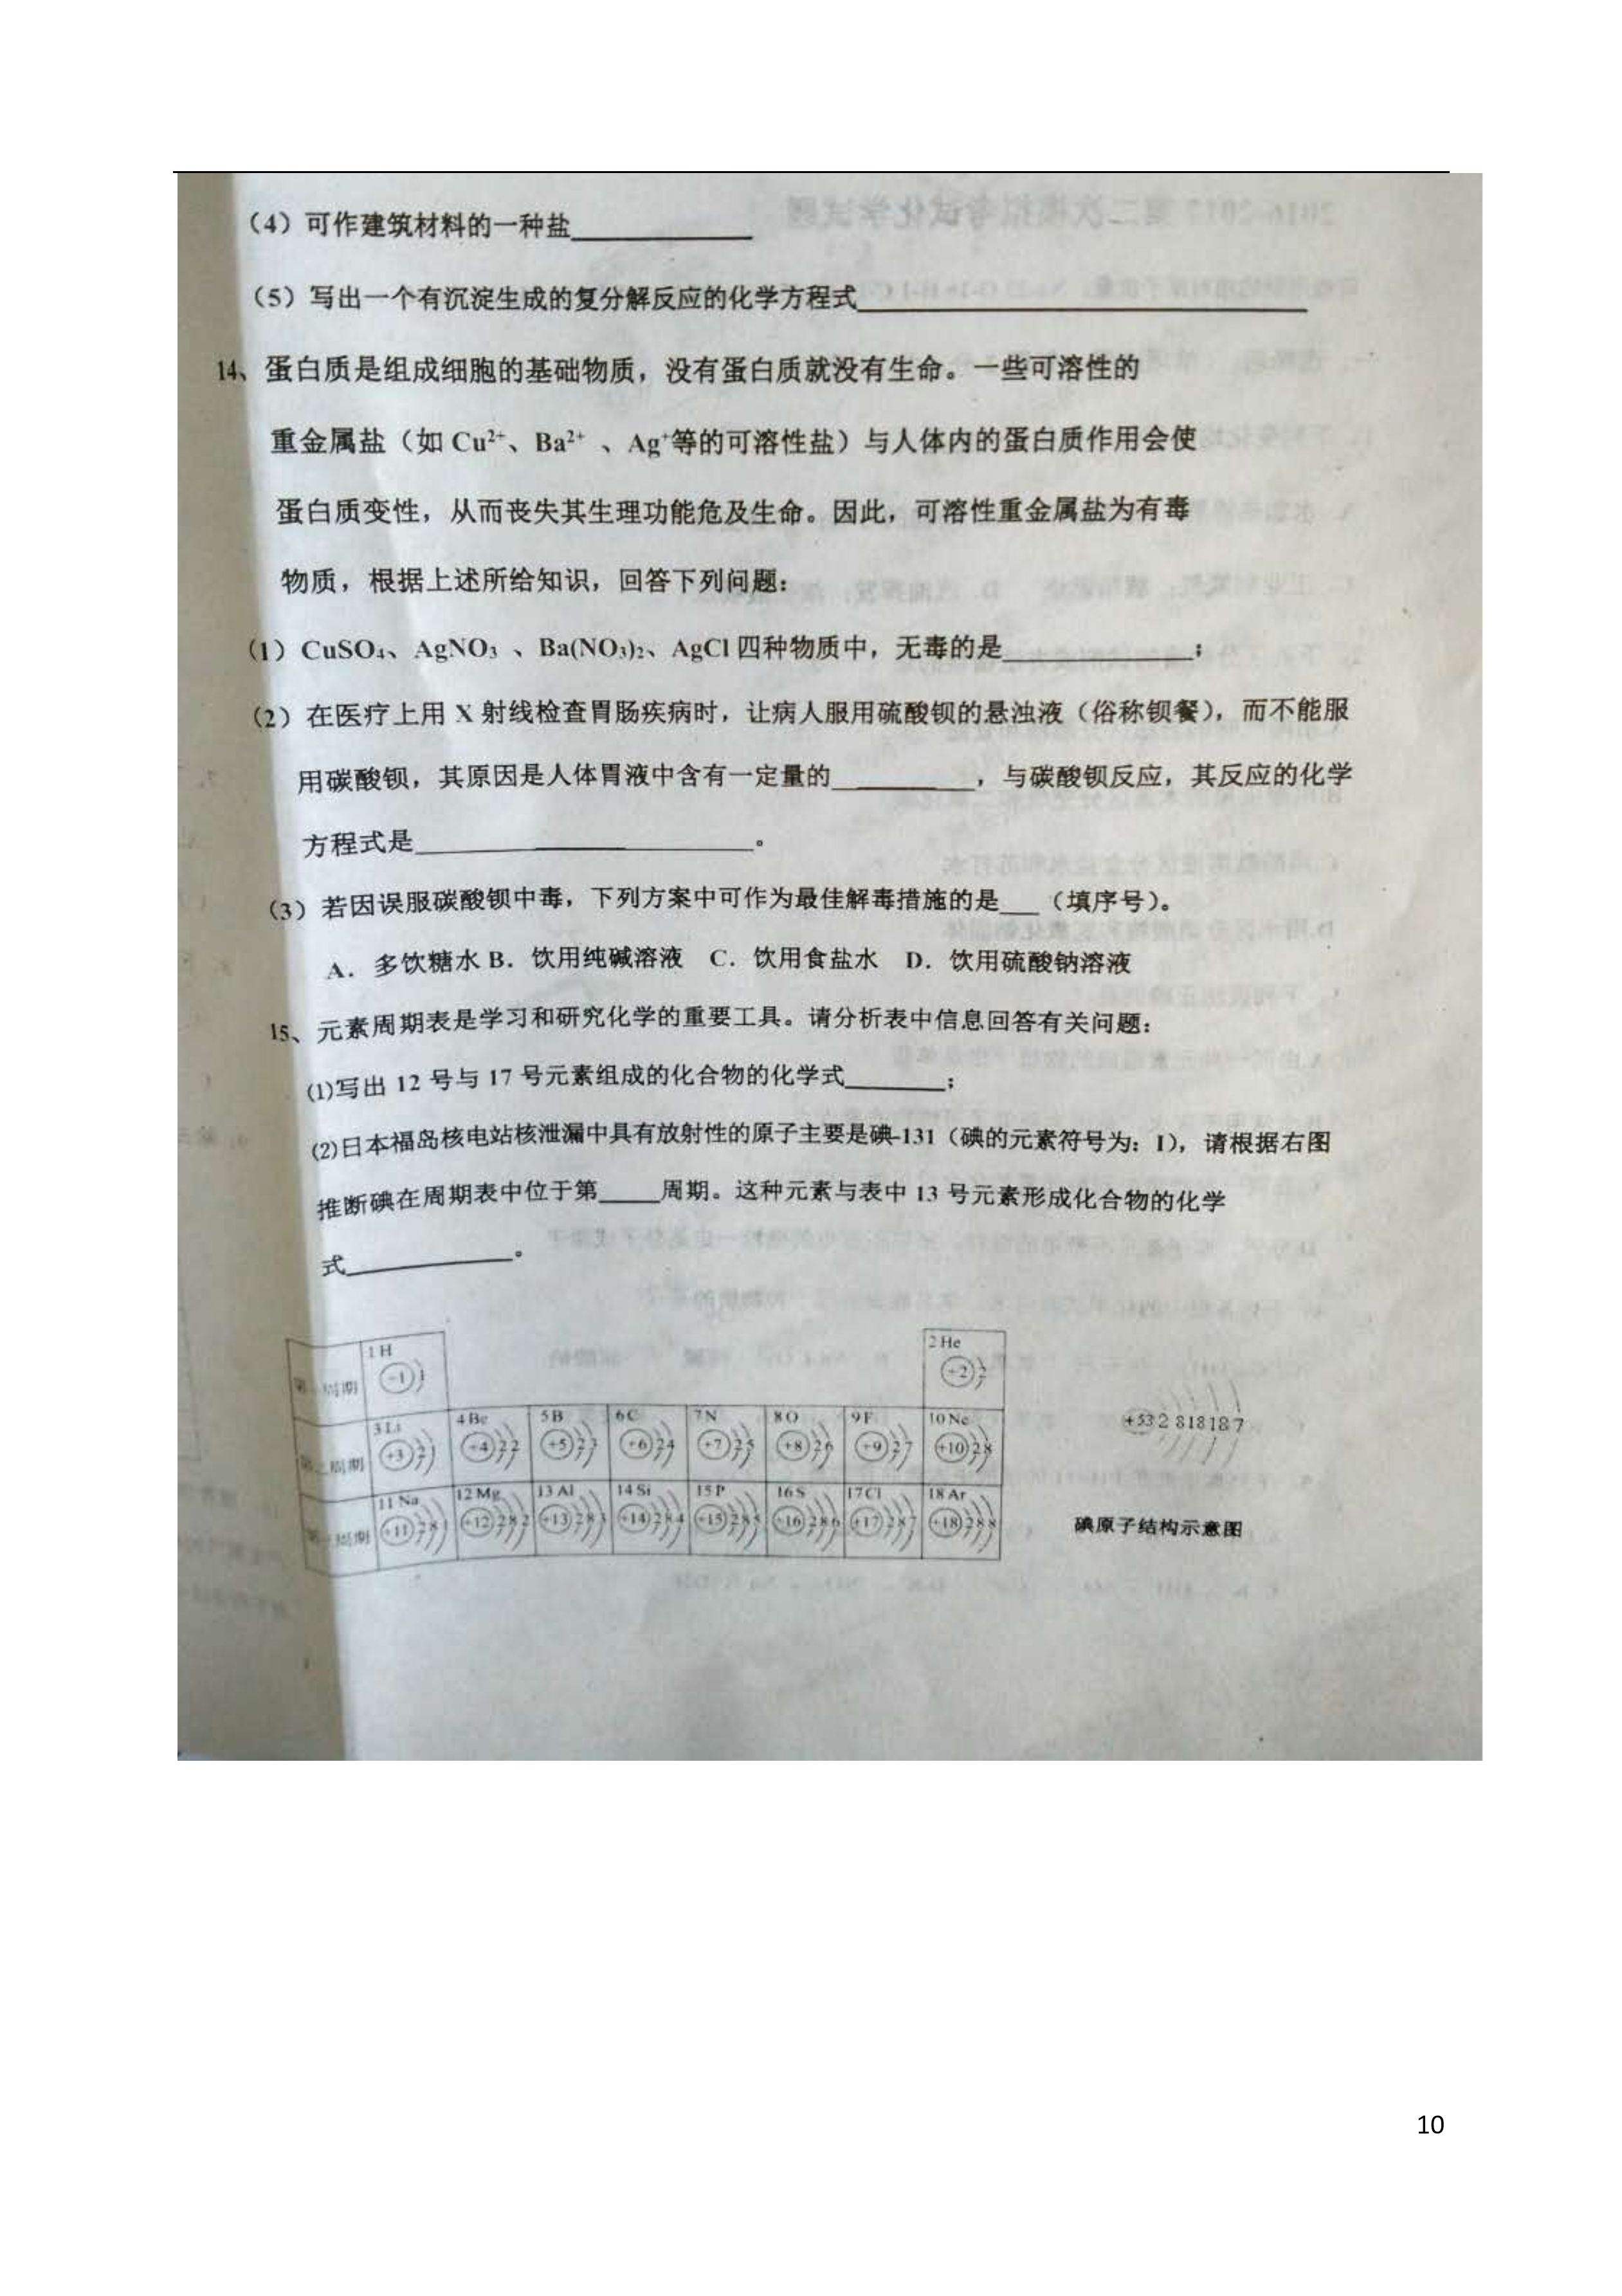 (4)可作建筑材料的一种盐
(5)写出一个有沉淀生成的复分解反应的化学方程式
14、蛋白质是组成细胞的基础物质，没有蛋白质就没有生命。一些可溶性的
重金属盐（如 Cu²⁺、Ba²⁺ 、Ag⁺等的可溶性盐）与人体内的蛋白质作用会使
蛋白质变性，从而丧失其生理功能危及生命。因此，可溶性重金属盐为有毒
物质，根据上述所给知识，回答下列问题：
(1) CuSO₄、AgNO₃ 、Ba(NO₃)₂、AgCl 四种物质中，无毒的是__________；
(2) 在医疗上用 X 射线检查胃肠疾病时，让病人服用硫酸钡的悬浊液（俗称钡餐），而不能服
用碳酸钡，其原因是人体胃液中含有一定量的__________，与碳酸钡反应，其反应的化学
方程式是__________。
(3) 若因误服碳酸钡中毒，下列方案中可作为最佳解毒措施的是___（填序号）。
A．多饮糖水 B．饮用纯碱溶液 C．饮用食盐水 D．饮用硫酸钠溶液
15、元素周期表是学习和研究化学的重要工具。请分析表中信息回答有关问题：
(1)写出 12 号与 17 号元素组成的化合物的化学式________；
(2)日本福岛核电站核泄漏中具有放射性的原子主要是碘-131（碘的元素符号为：I），请根据右图
推断碘在周期表中位于第____周期。这种元素与表中 13 号元素形成化合物的化学
式__________。
1 H 2 He
+1 1 +2 2
3 Li 4 Be 5 B 6 C 7 N 8 O 9 F 10 Ne
+3 2 1 +4 2 2 +5 2 3 +6 2 4 +7 2 5 +8 2 6 +9 2 7 +10 2 8
+53 2 8 18 18 7
11 Na 12 Mg 13 Al 14 Si 15 P 16 S 17 Cl 18 Ar
+11 2 8 1 +12 2 8 2 +13 2 8 3 +14 2 8 4 +15 2 8 5 +16 2 8 6 +17 2 8 7 +18 2 8 8
碘原子结构示意图
10